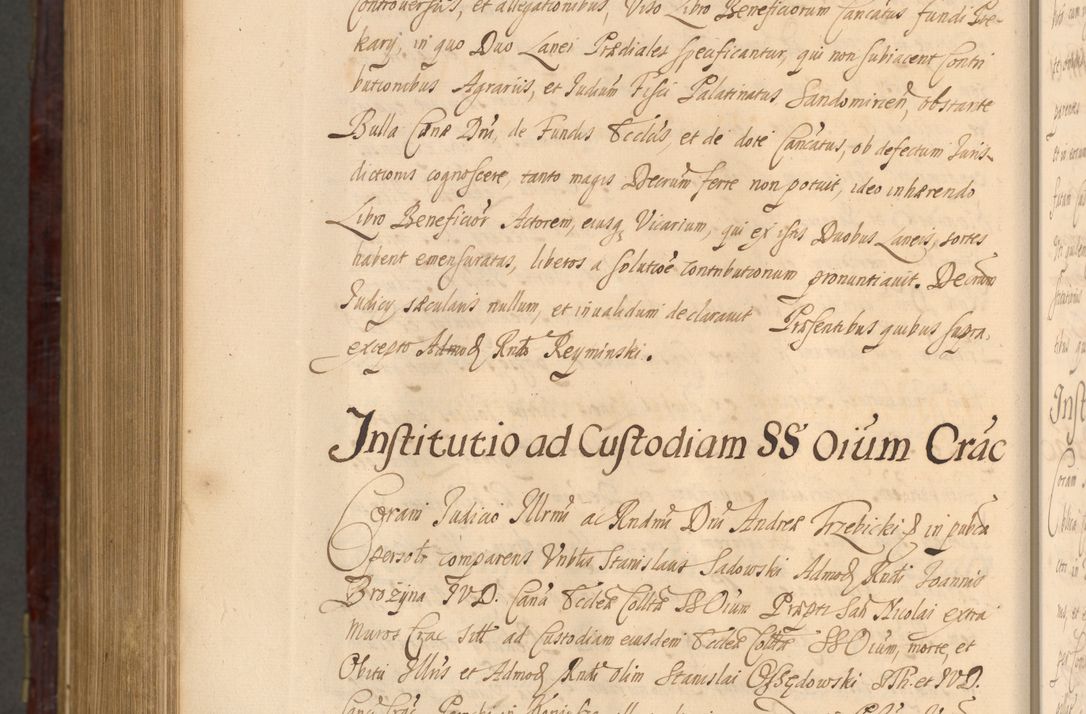 Controversiis, et allegationibus, Viso Libro Beneficiorum Cancatus fundi Pre-
kary, in quo Duo Lanei Prædiales specificantur, qui non subiacent Contri
butionibus Agrariis, et Iudicium Fisci Palatinatus Sandomirien, obstante
Bulla Cænæ Dni, de Fundis Ecclis, et de dote Cancatus, ob defectum Iuris-
dictionis cognoscere, tanto magis Decrum ferre non potuit, ideo inhærendo
Libro Beneficior Actorem, eiusq Vicarium, qui ex istis Duobus Laneis, sortes
habent emensuratas, liberos a solutioe contributionum pronuntiavit. Decrum
Iudicy sæcularis nullum, et invalidum declaravit Præsentibus quibus supra,
excepto Admod Rndo Reyminski.
Institutio ad Custodiam SS Oiũm Crac
Coram Iudicio Illrmi ac Rndmi Dni Andreæ Trzebicki & in pubca
persolr comparens Vnblis Stanislaus Sadowski Admod Rndi Joannis
Brozyna IVD. Cana Ecclea Collta SS Oium Præpti San Nicolai extra
muros Crac sitt ad Custodiam eiusdem Ecclea Collta SS Oium, morte, et
Obitu Illris et Admod Rndi olim Stanislai Ossędowski STh. et IVD.